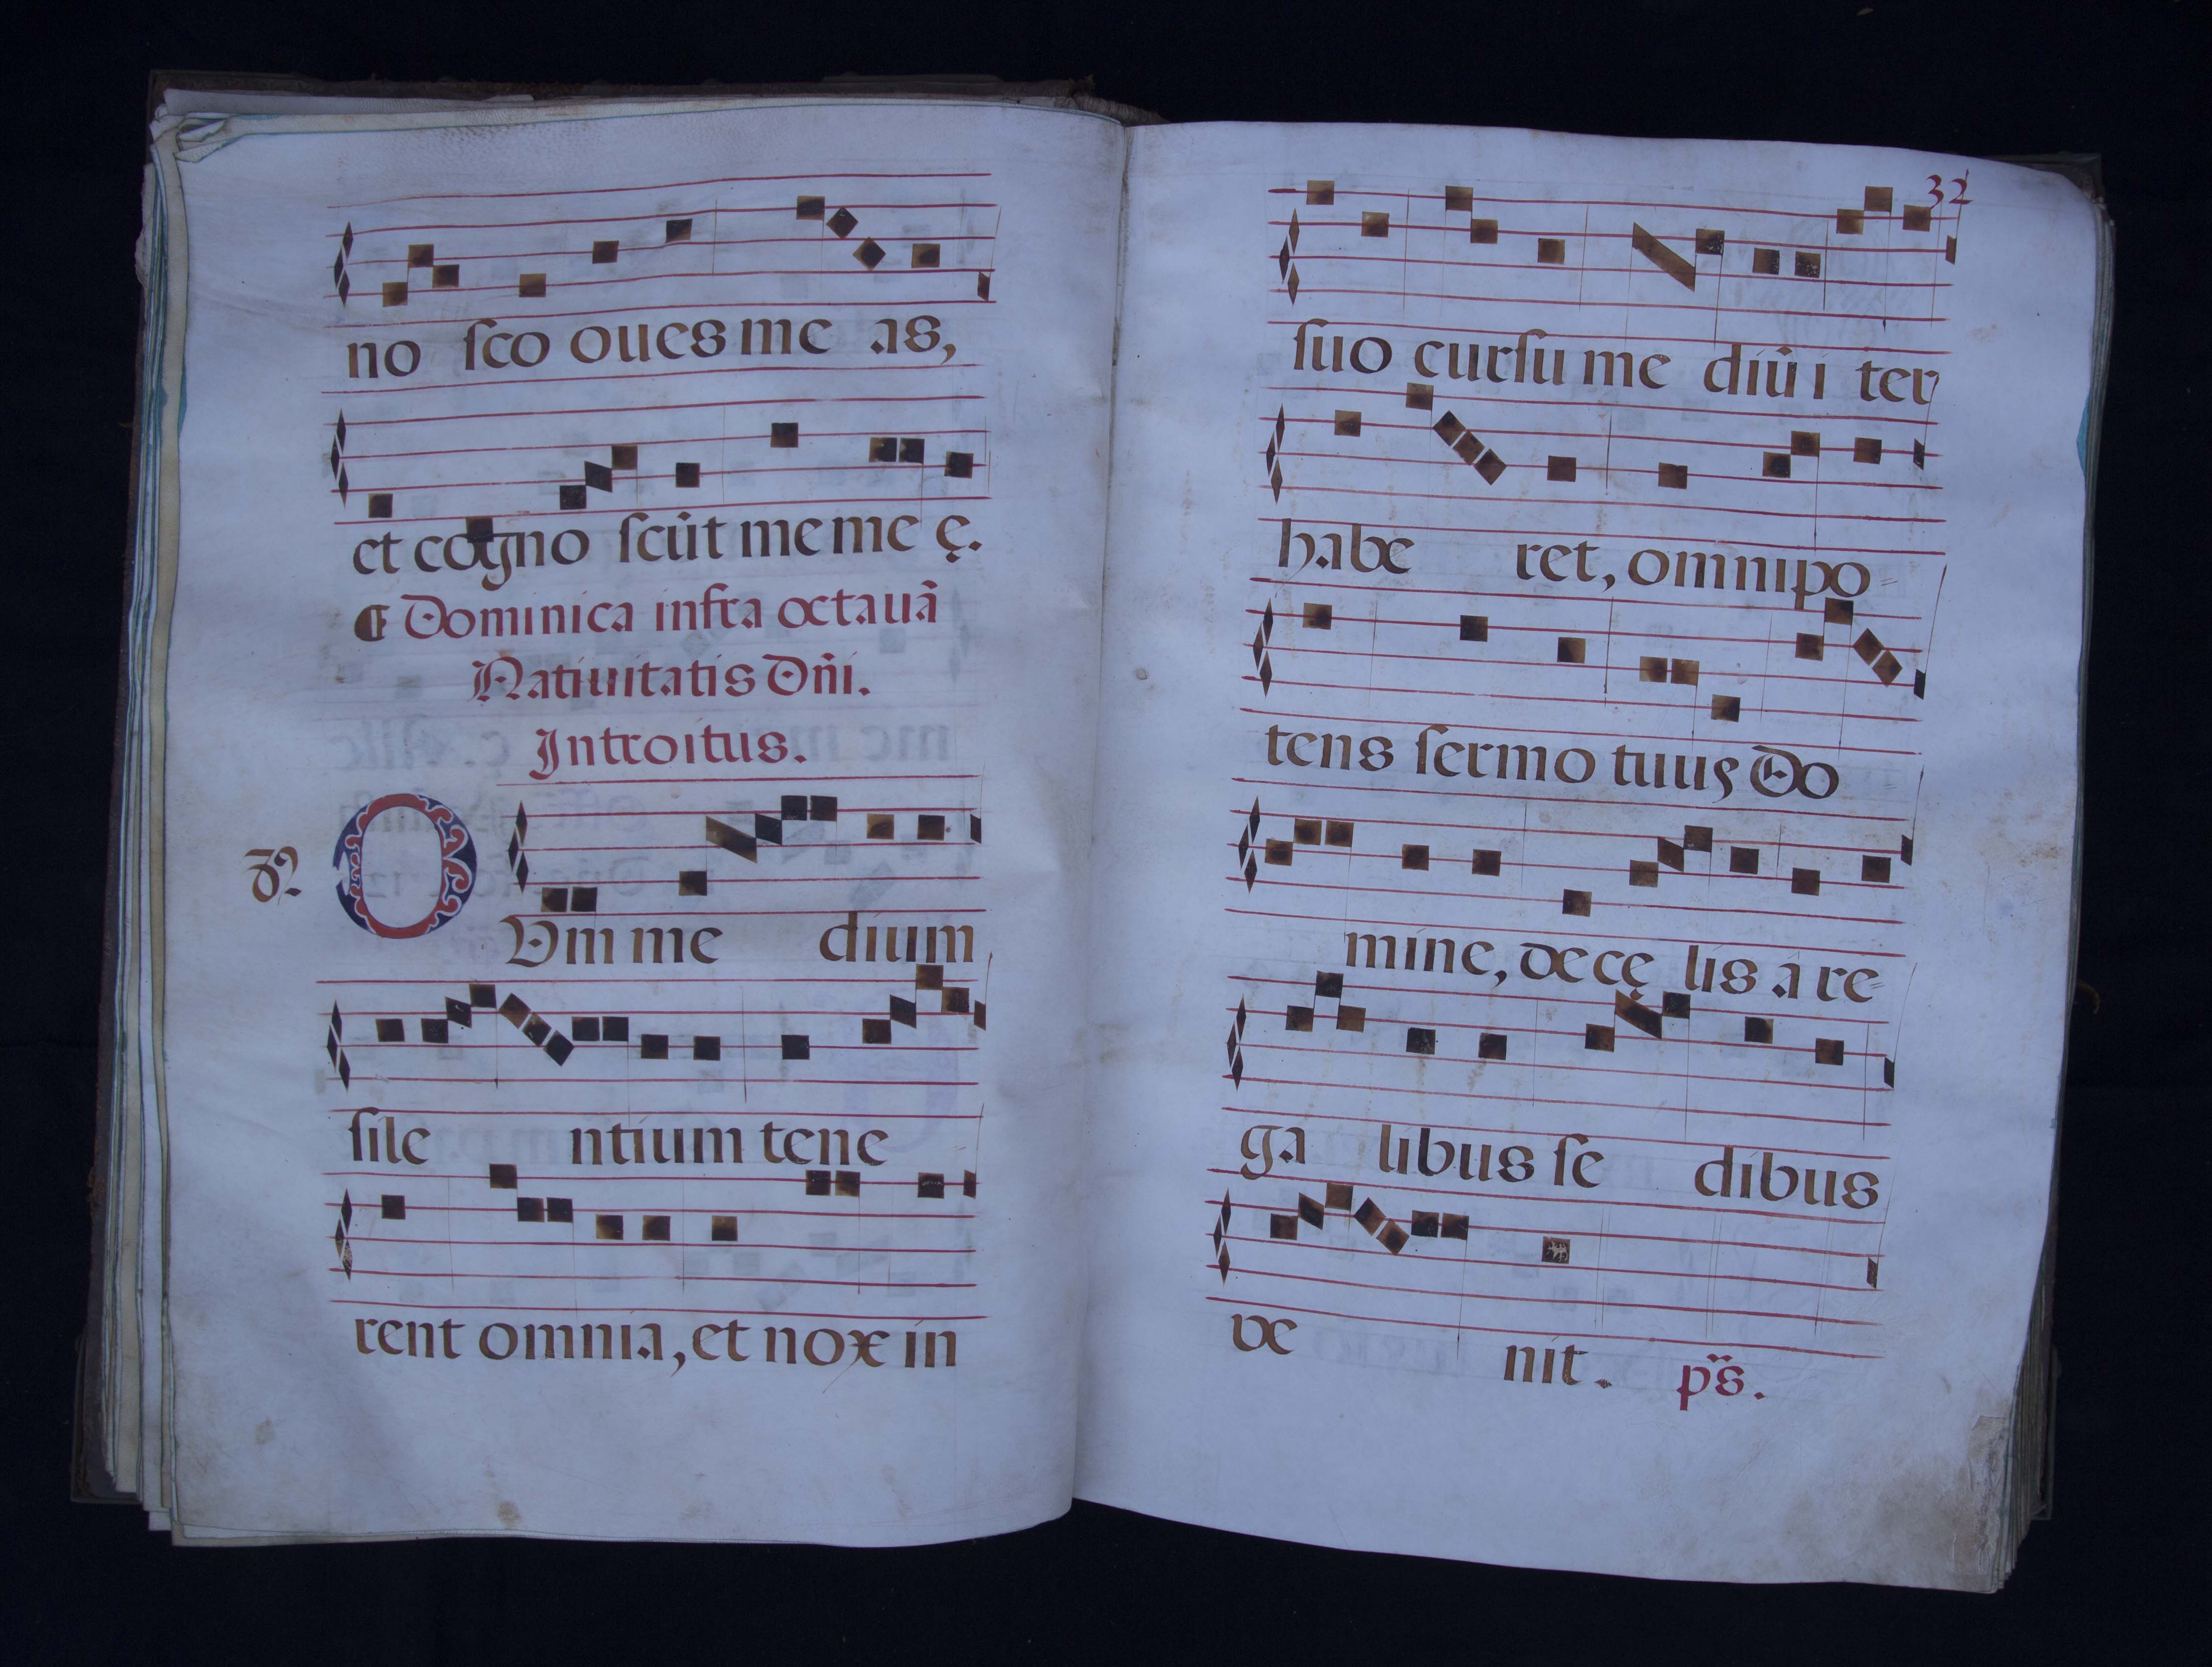 no ſco oues me as,
et cogno ſcūt me me ę.
¶ Dominica infra octauā
Natiuitatis Dñi.
Introitus.
DVm me dium
ſile ntium tene
rent omnia, et nox in
32
ſuo curſu me diū i ter
habe ret, omnipo=
tens ſermo tuus Do=
mine, de cę lis á re=
ga libus ſe dibus
ve nit. ps.